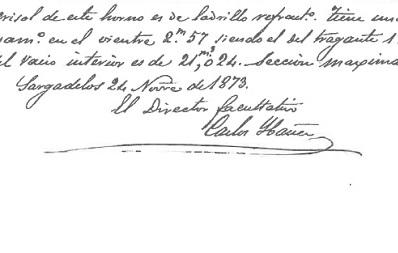 crisol de este horno es de ladrillo refracto. tiene un
diam.º en el vientre 2.m 57 siendo el del tragante 1
el vacio interior es de 21,m³024. Seccion maxima
Sargadelos 24 Novre de 1873.
El Director facultativo
Carlos Ibañez